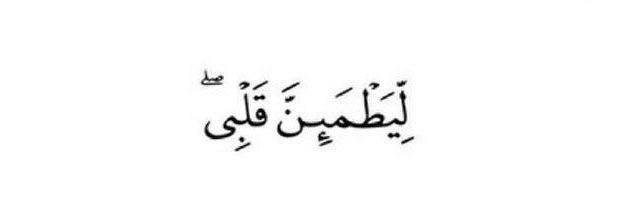 لِّيَطْمَئِنَّ قَلْبِى ۖ